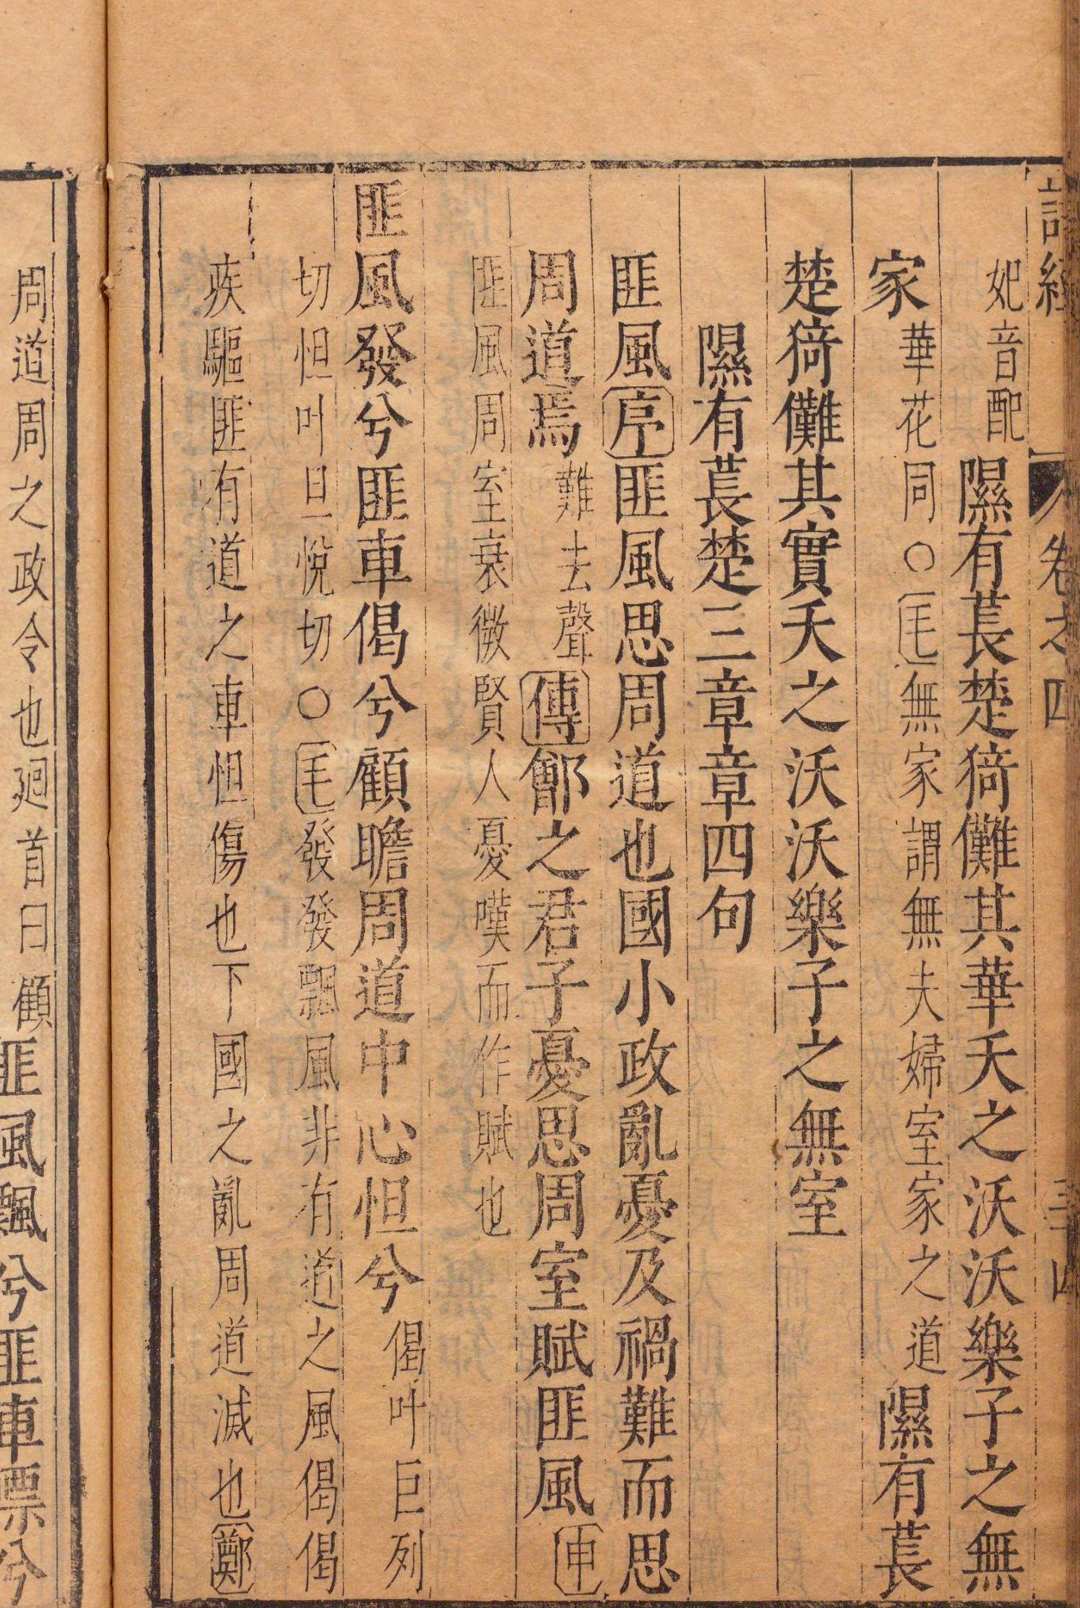 詩經 卷之四
妃音配 隰有萇楚猗儺其華夭之沃沃樂子之無
家 華花同○毛無家謂無夫婦室家之道 隰有萇
楚猗儺其實夭之沃沃樂子之無室
隰有萇楚三章章四句
匪風序匪風思周道也國小政亂憂及禍難而思
周道焉 難去聲 傳鄶之君子憂思周室賦匪風 申
匪風周室衰微賢人憂嘆而作賦也
匪風發兮匪車偈兮顧瞻周道中心怛兮 偈叶巨列
切怛叶旦悅切○毛發發飄風非有道之風偈偈
疾驅匪有道之車怛傷也下國之亂周道滅也鄭
周道周之政令也迴首曰顧 匪風飄兮匪車嘌兮